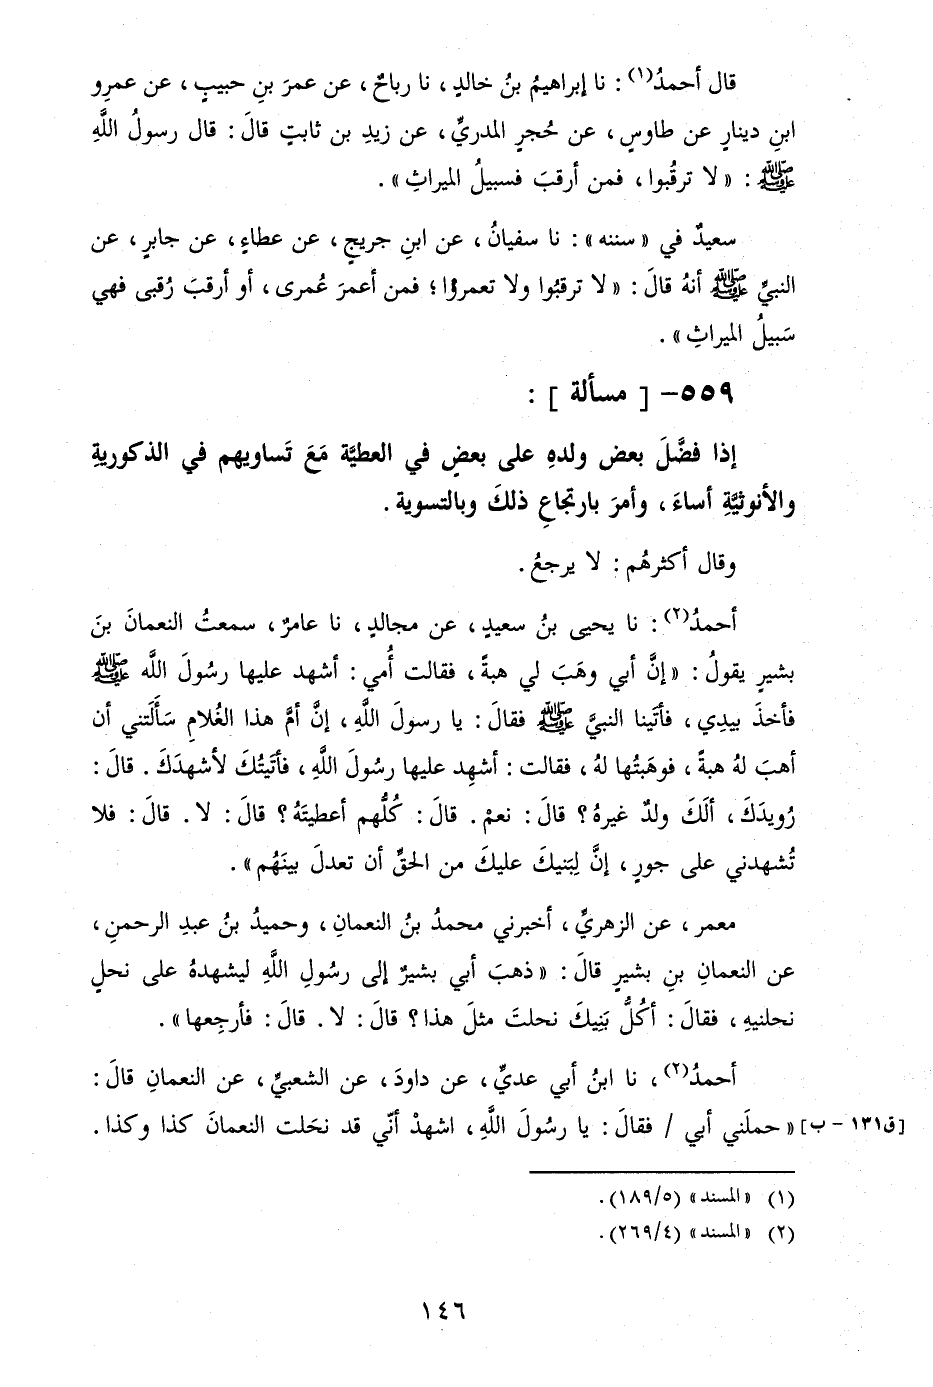 قال أحمدُ(١) : نا إبراهيمُ بنُ خالدٍ، نا رباحٌ، عن عمرَ بنِ حبيبٍ، عن عمرِو
ابنِ دينارٍ عن طاوسٍ، عن حُجرٍ المدريِّ، عن زيدِ بن ثابتٍ قالَ : قال رسولُ اللَّهِ
ﷺ : « لا ترقُبوا، فمن أرقبَ فسبيلُ الميراثِ».
سعيدٌ في «سننه» : نا سفيانُ، عن ابنِ جريجٍ، عن عطاءٍ، عن جابرٍ، عن
النبيِّ ﷺ أنهُ قالَ : « لا ترقبُوا ولا تعمروُا؛ فمن أعمرَ عُمرى، أو أرقبَ رُقبى فهي
سَبيلُ الميراثِ».
٥٥٩- [ مسألة ] :
إذا فضَّلَ بعض ولدهِ على بعضٍ في العطيَّة مَعَ تَساويهم في الذكوريةِ
والأنوثيَّةِ أساءَ، وأمرَ بارتجاعِ ذلكَ وبالتسوية .
وقال أكثرهُم : لا يرجعُ .
أحمدُ(٢) : نا يحيى بنُ سعيدٍ، عن مجالدٍ، نا عامرٌ، سمعتُ النعمانَ بنَ
بشيرٍ يقولُ : « إنَّ أبي وهَبَ لي هبةً، فقالت أُمي : أشهد عليها رسُولَ اللَّه ﷺ
فأخذَ بيدِي، فأتَينا النبيَّ ﷺ فقالَ : يا رسولَ اللَّهِ، إنَّ أمَّ هذا الغُلامِ سَأَلَتني أن
أهبَ لهُ هبةً، فوهَبتُها لهُ، فقالت : أشهِد عليها رسُولَ اللَّهِ، فأتَيتُكَ لأشهدَكَ . قالَ :
رُويدَكَ، ألَكَ ولدٌ غيرهُ؟ قالَ : نعمْ . قالَ : كُلُّهم أعطيتَهُ؟ قالَ : لا . قالَ : فلا
تُشهدني على جورٍ، إنَّ لِبَنيكَ عليكَ من الحقِّ أن تعدلَ بينَهُم».
معمر، عن الزهريِّ، أخبرني محمدُ بنُ النعمانِ، وحميدُ بنُ عبدِ الرحمنِ،
عن النعمانِ بنِ بشيرٍ قالَ : « ذهبَ أبي بشيرٌ إلى رسُولِ اللَّهِ ليشهدهُ على نحلٍ
نحلنيهِ، فقالَ : أكُلُّ بَنِيكَ نحلتَ مثلَ هذا؟ قالَ : لا . قالَ : فأرجِعها».
أحمدُ(٢)، نا ابنُ أبي عديٍّ، عن داودَ، عن الشعبيِّ، عن النعمانِ قالَ :
[ق١٣١ - ب] « حملَني أبي / فقالَ : يا رسُولَ اللَّهِ، اشهدْ أنّي قد نحَلت النعمانَ كذا وكذا .
(١) «المسند» (١٨٩/٥).
(٢) «المسند» (٢٦٩/٤).
١٤٦